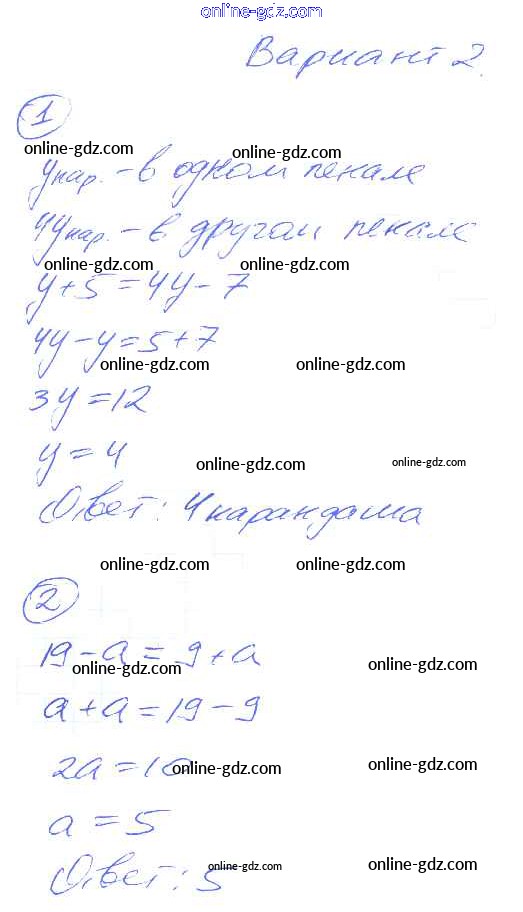 online-gdz.com
Вариант 2.
1
online-gdz.com online-gdz.com
y кар. - в одном пенале
4y кар. - в другом пенале
online-gdz.com online-gdz.com
y + 5 = 4y - 7
4y - y = 5 + 7
online-gdz.com online-gdz.com
3y = 12
y = 4
online-gdz.com online-gdz.com
Ответ: 4 карандаша
online-gdz.com online-gdz.com
2
19 - a = 9 + a
online-gdz.com online-gdz.com
a + a = 19 - 9
2a = 10
online-gdz.com online-gdz.com
a = 5
Ответ: 5
online-gdz.com online-gdz.com